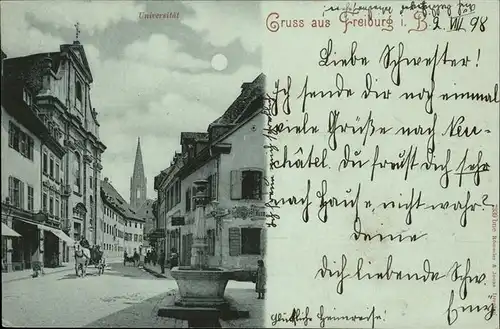 Universität
Gruss aus Freiburg i. B.
2. VII 98
Liebe Schwester!
Ich sende dir noch einmal
viele Grüße nach Neu-
châtel. Du freust Dich sehr
nach Hause, nicht wahr?
deine
Dich liebende Schw.
Glückliche Heimreise!